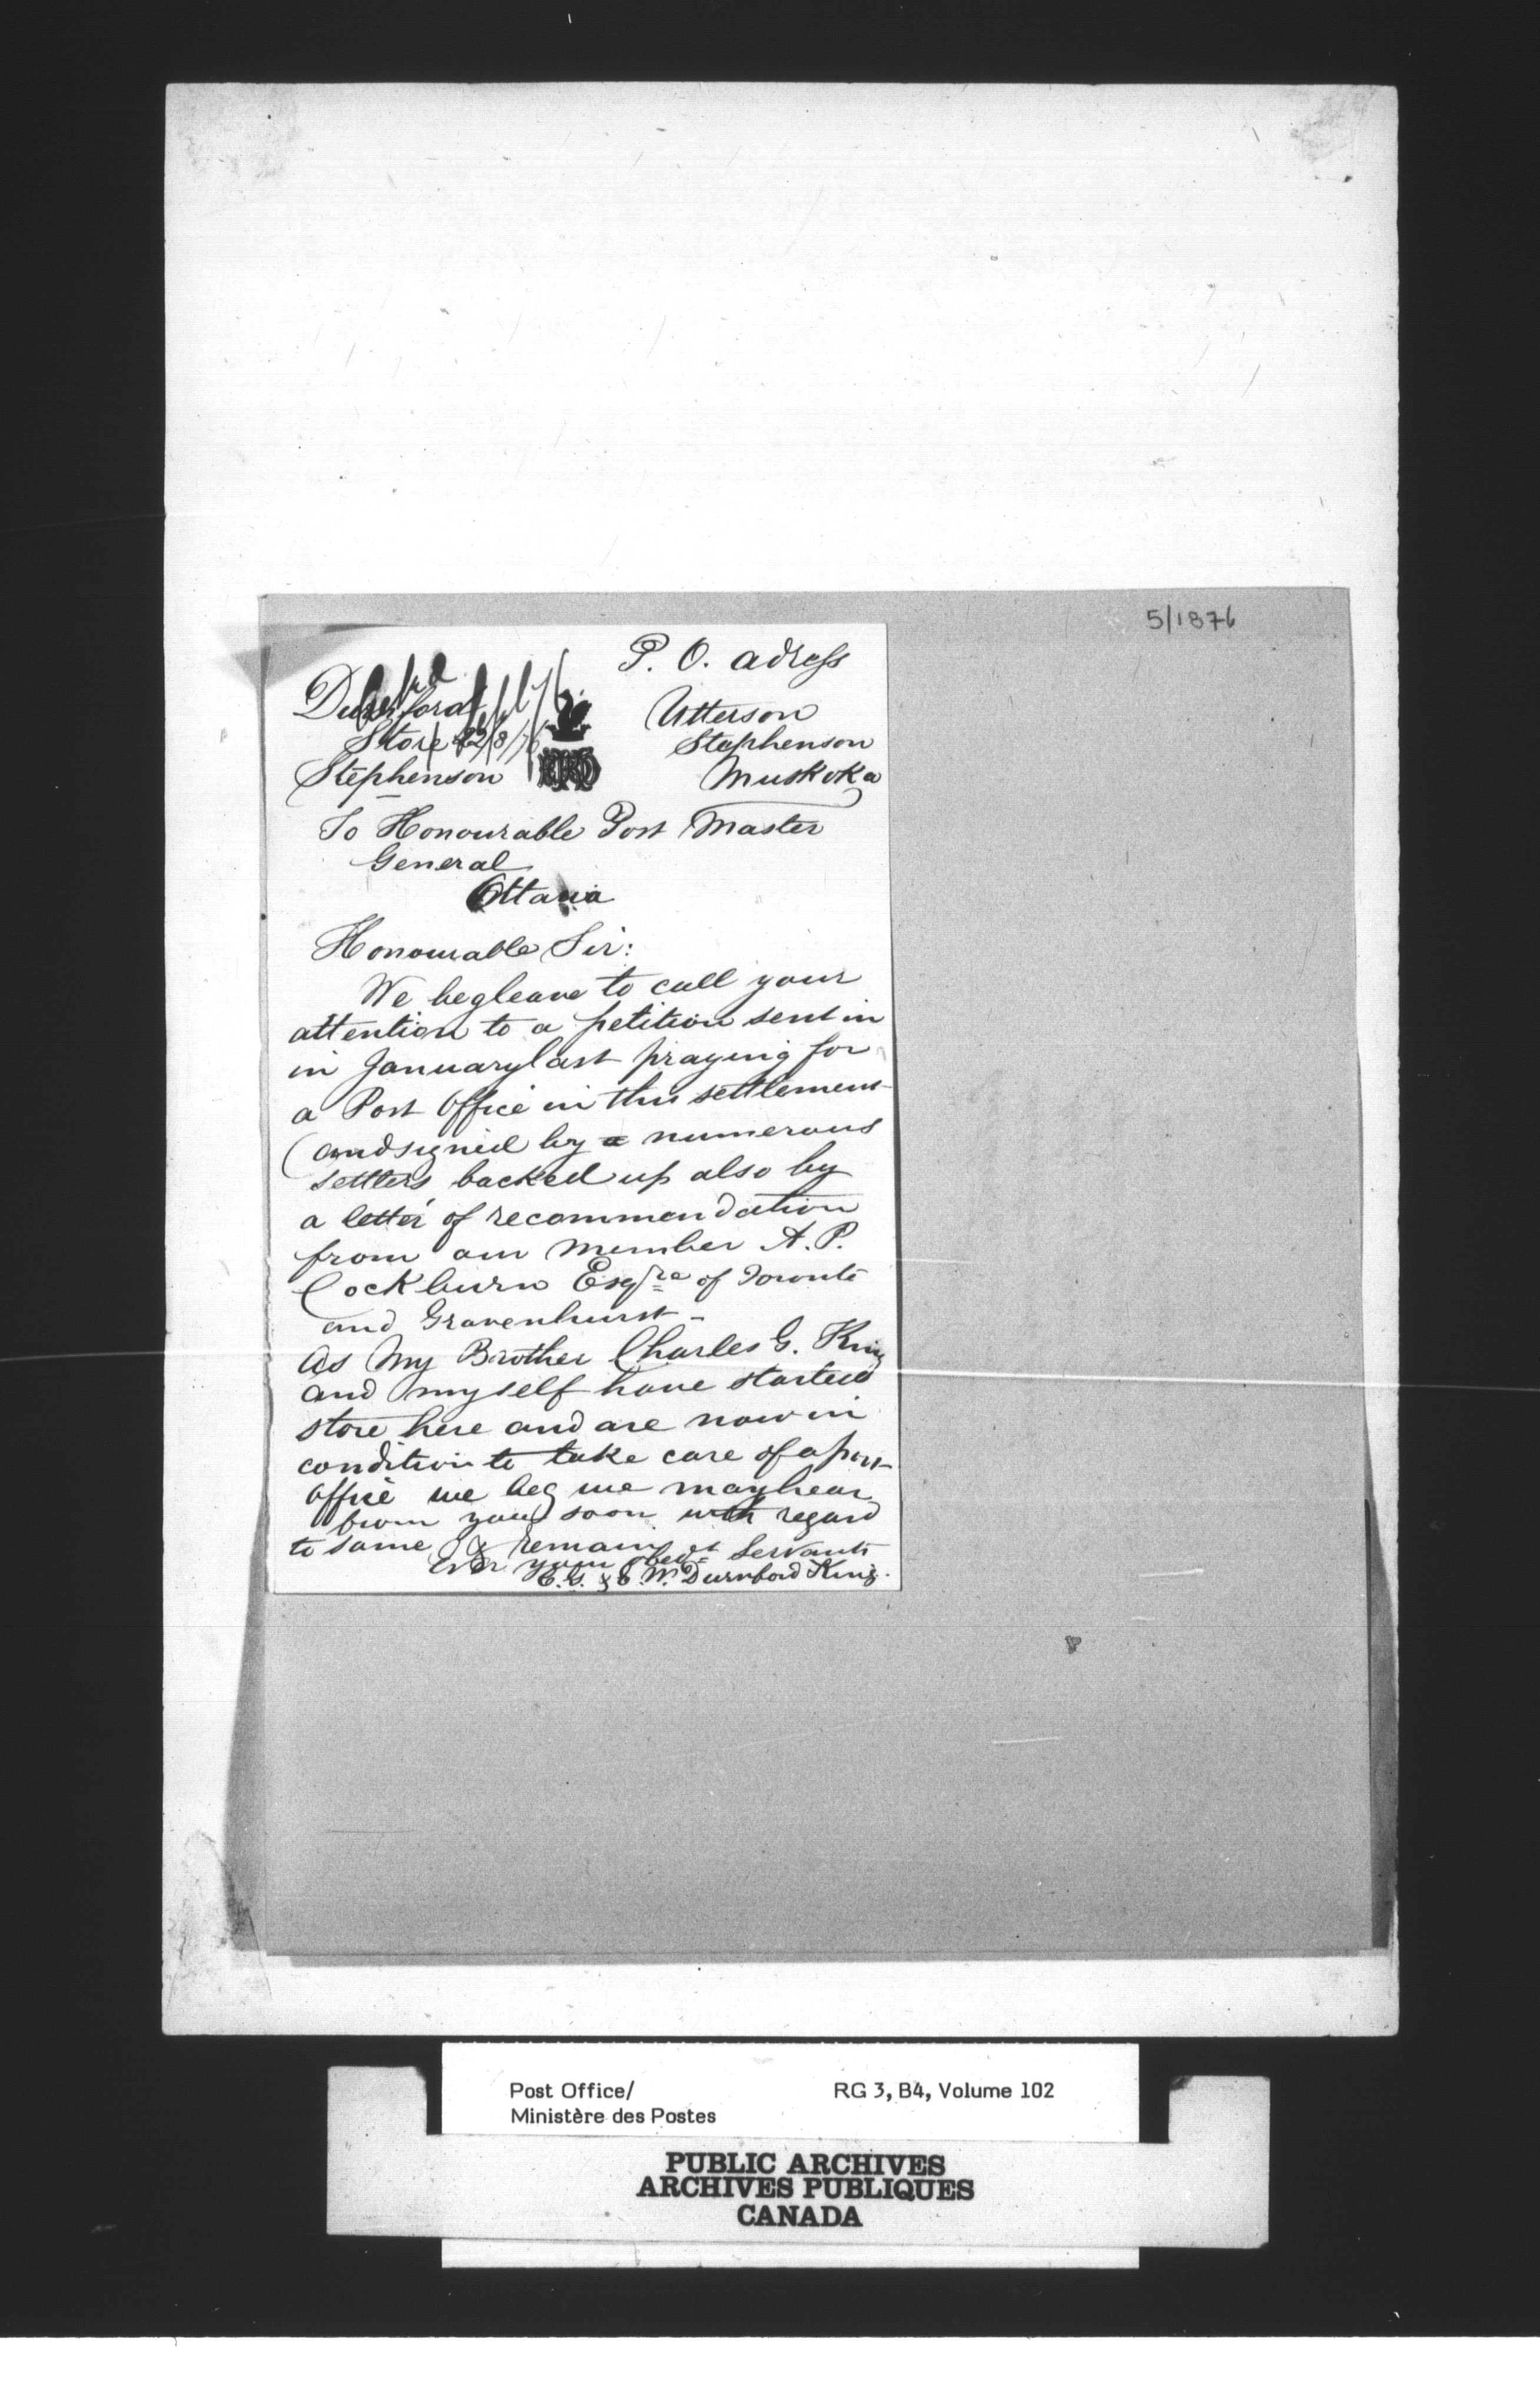 5/1876
P. O. adress
Durnford
Store 22/8/76
Stephenson
Utterson
Stephenson
Muskoka
To Honourable Post Master
General
Ottawa
Honourable Sir:
We beg leave to call your
attention to a petition sent in
in January last praying for
a Post Office in this settlement
(and signed by a numerous
settlers backed up also by
a letter of recommendation
from our member A. P.
Cockburn Esqre of Toronto
and Gravenhurst -
As My Brother Charles G. King
and myself have started
store here and are now in
condition to take care of a post
office we beg we may hear
from you soon with regard
to same & remain
ever your obedt Servants
C. G. & E. W. Durnford King.
Post Office/
Ministère des Postes
RG 3, B4, Volume 102
PUBLIC ARCHIVES
ARCHIVES PUBLIQUES
CANADA